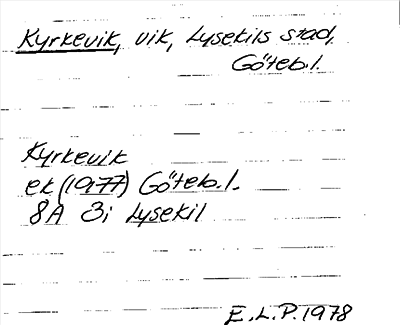 Kyrkevik, vik, Lysekils stad,
Göteb.l.
Kyrkevik
ek (1977) Göteb.l.
8A 3i Lysekil
E.L.P. 1978